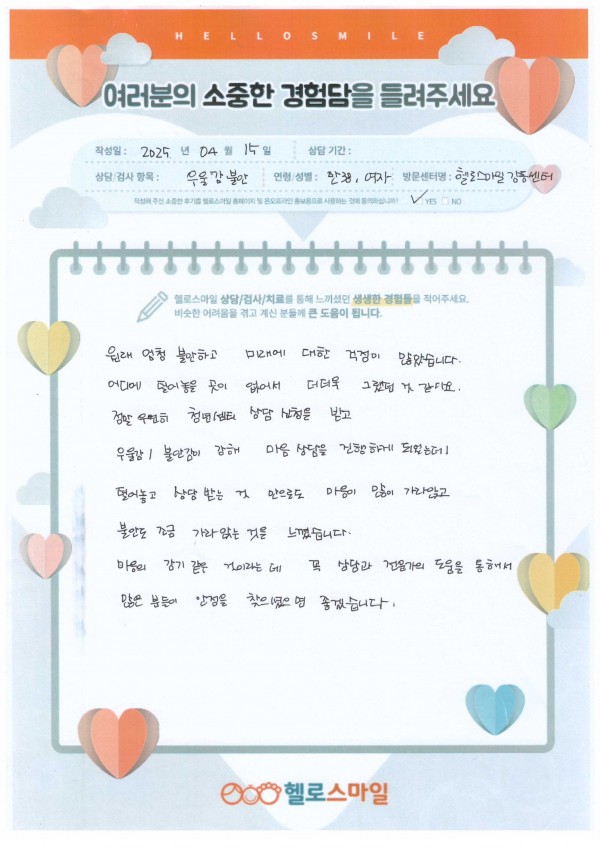 HELLOSMILE
여러분의 소중한 경험담을 들려주세요
작성일 : 2025 년 04 월 15 일 상담 기간 :
상담/검사 항목 : 우울감 불안 연령/성별 : 만 , 여자 방문센터명 : 헬로스마일 강동센터
작성해 주신 소중한 후기를 헬로스마일 홈페이지 및 온오프라인 홍보용으로 사용하는 것에 동의하십니까? YES NO
헬로스마일 상담/검사/치료를 통해 느끼셨던 생생한 경험들을 적어주세요.
비슷한 어려움을 겪고 계신 분들께 큰 도움이 됩니다.
원래 엄청 불안하고 미래에 대한 걱정이 많았습니다.
어디에 털어놓을 곳이 없어서 더더욱 그랬던 것 같아요.
정말 우연히 청년센터 상담 신청을 받고
우울감 / 불안감이 강해 마음 상담을 진행하게 되었는데
털어놓고 상담 받는 것 만으로도 마음이 많이 가라앉고
불안도 조금 가라앉는 것을 느꼈습니다.
마음의 감기 같은 것이라는데 꼭 상담과 전문가의 도움을 통해서
많은 분들이 안정을 찾으셨으면 좋겠습니다.
헬로스마일